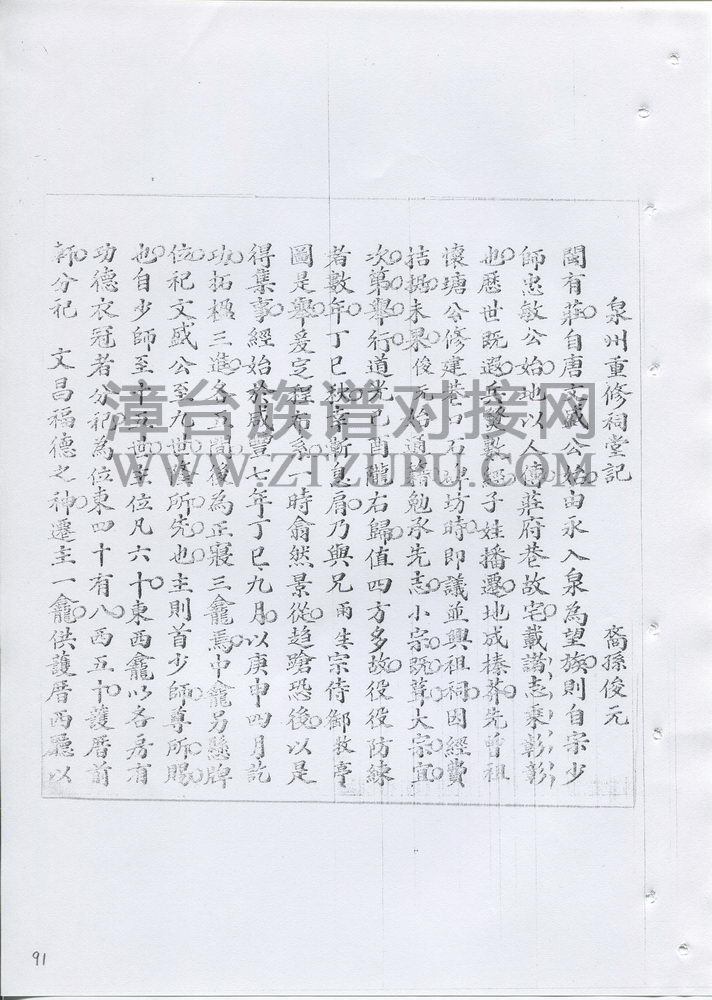 泉州重修祠堂記　裔孫俊元
閩有莊自唐文盛公始由永入泉為望族則自宗少
師忠敏公始也以人傳莊府巷故宅載諸志乘彰彰
也歷世既遐兵燹數經子姓播遷地成榛莽先曾祖
懷塘公修建巷口石牌坊時即議並興祖祠因經費
拮据未果俊元始通籍勉承先志小宗既葺大宗宜
次第舉行道光己酉隴右歸值四方多故役役防練
者數年丁巳秋宇漸息肩乃與兄雨生宗侍御牧亭
圖是舉爰定程布系一時翕然景從趨蹌恐後以是
得集事經始於咸豐七年丁巳九月以庚申四月訖
功拓楹三進各五間後為正寢三龕焉中龕另懸牌
位祀文盛公至九世尊所先也主則首少師尊所賜
也自少師至十五世主位凡六十東西龕以各房有
功德衣冠者分祀為位東四十有八西五十護厝前
軒分祀　文昌福德之神遷主一龕供護厝西廳以
漳台族谱对接网
WWW.ZTZUPU.COM
91